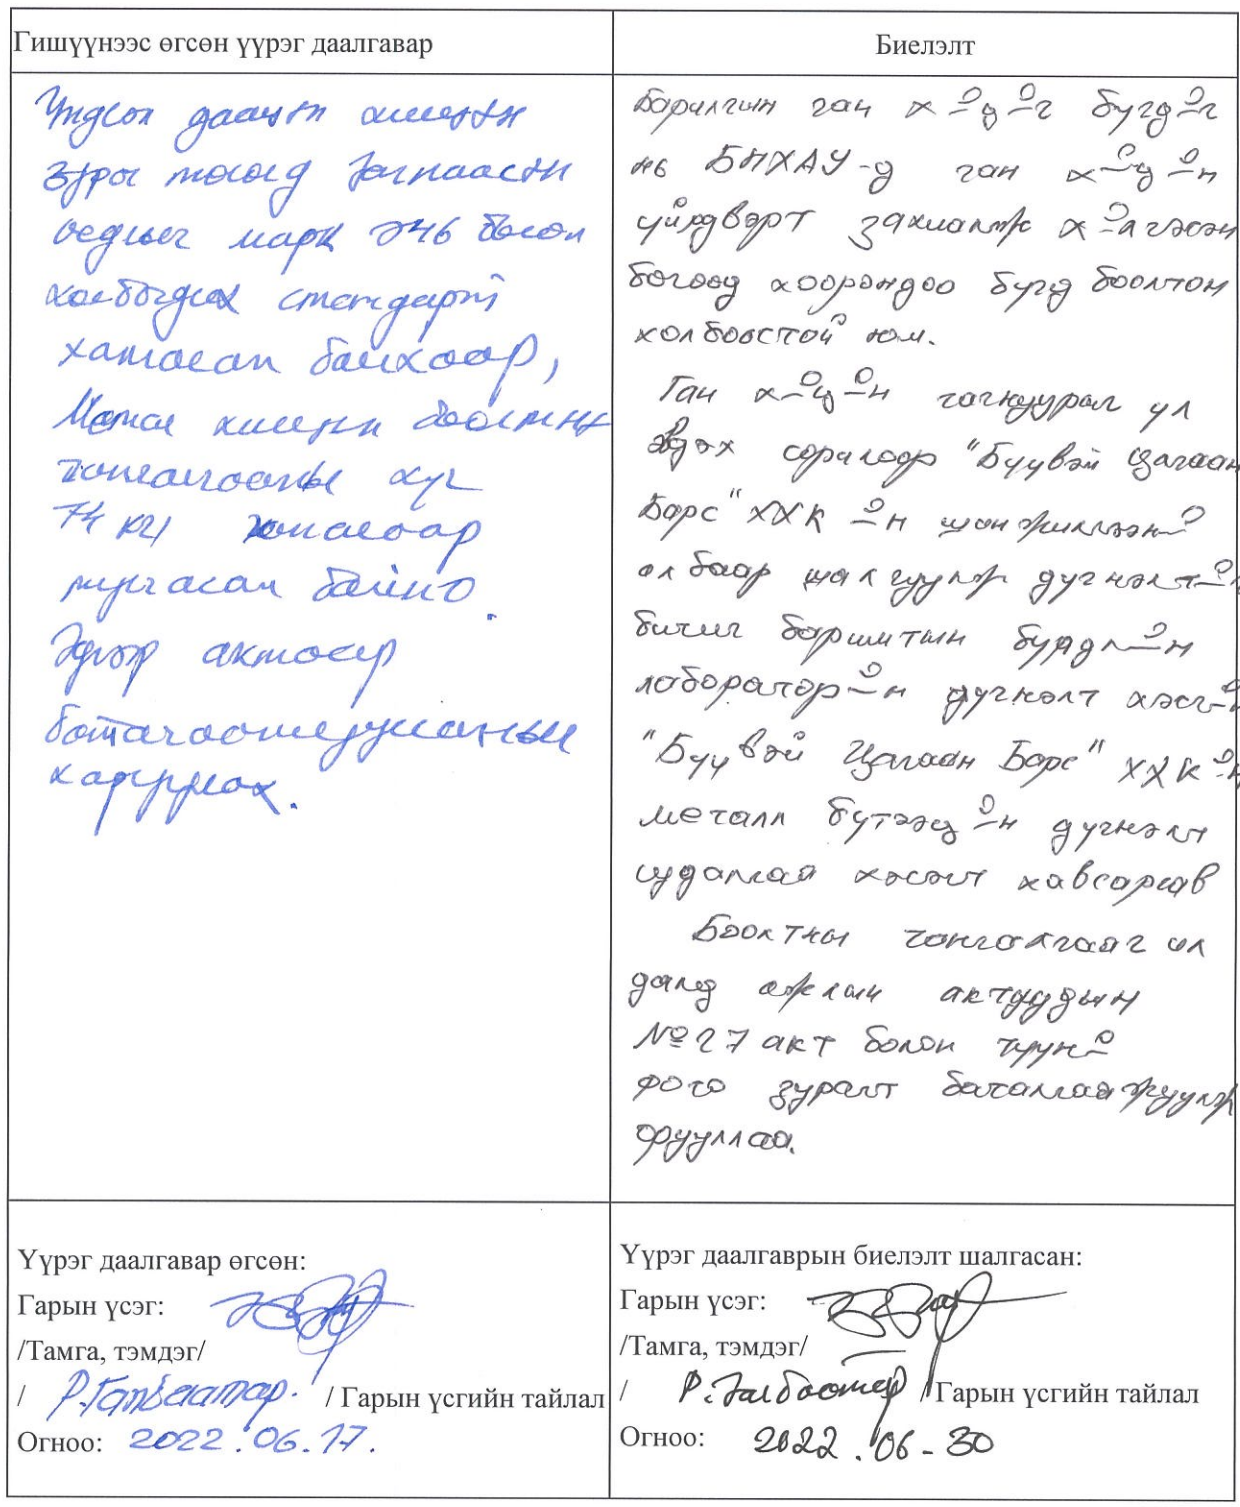 Гишүүнээс өгсөн үүрэг даалгавар
Үндсэн даацын хийцийн
зураг төсөлд
марк Э46 болон
холбогдох стандарт
хангасан байхаар,
Метал хийцийн боолтны
чангалгааны хүч
74 кг/ хангасаар
шургасан байна.
Эдгээр актаар
баталгаажуулсаныг
харуулах.
Биелэлт
Барилгын ган х—д—г бүгд—г
нь БНХАУ-д ган х—ц—н
үйлдвэрт захиалж х—лгэсэн
бөгөөд хоорондоо бүгд боолтон
холбоостой юм.
Ган х—ц—н гагнуурал үл
эвдэх сорилоор "Буувэй Цагаан
Барс" ХХК—н шинжилгээн—
албаар шалгуулж дүгнэлт—г
бичиг баримтын бүрдл—н
лаборатор—н дүгнэлт хэсг—
"Буувэй Цагаан Барс" ХХК—н
металл бүтээц—н дүгнэлт
судалгаа хэсэгт хавсаргав
Боолтны чангалгааг ил
далд ажлын актуудын
№27 акт болон түүн—
фото зурагт баталгаажуулж
орууллаа.
Үүрэг даалгавар өгсөн:
Гарын үсэг:
/Тамга, тэмдэг/
/ Р.Галбаатар. / Гарын үсгийн тайлал
Огноо: 2022.06.17.
Үүрэг даалгаврын биелэлт шалгасан:
Гарын үсэг:
/Тамга, тэмдэг/
/ Р.Галбаатар / Гарын үсгийн тайлал
Огноо: 2022.06-30